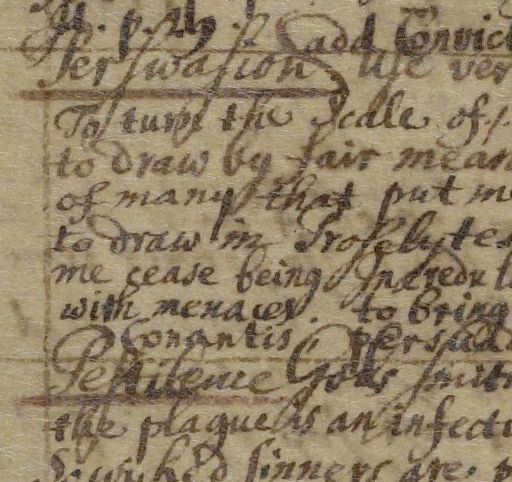 add Convict
Perswasion Use ver
To turn the Scale of
to draw by fair mean
of many that put me
to draw in Proselytes
me cease being Incredul
with menaces. to bring
Conantis persuad
Pestilence Gods smit
the plague is an infecti
& wicked sinners are p